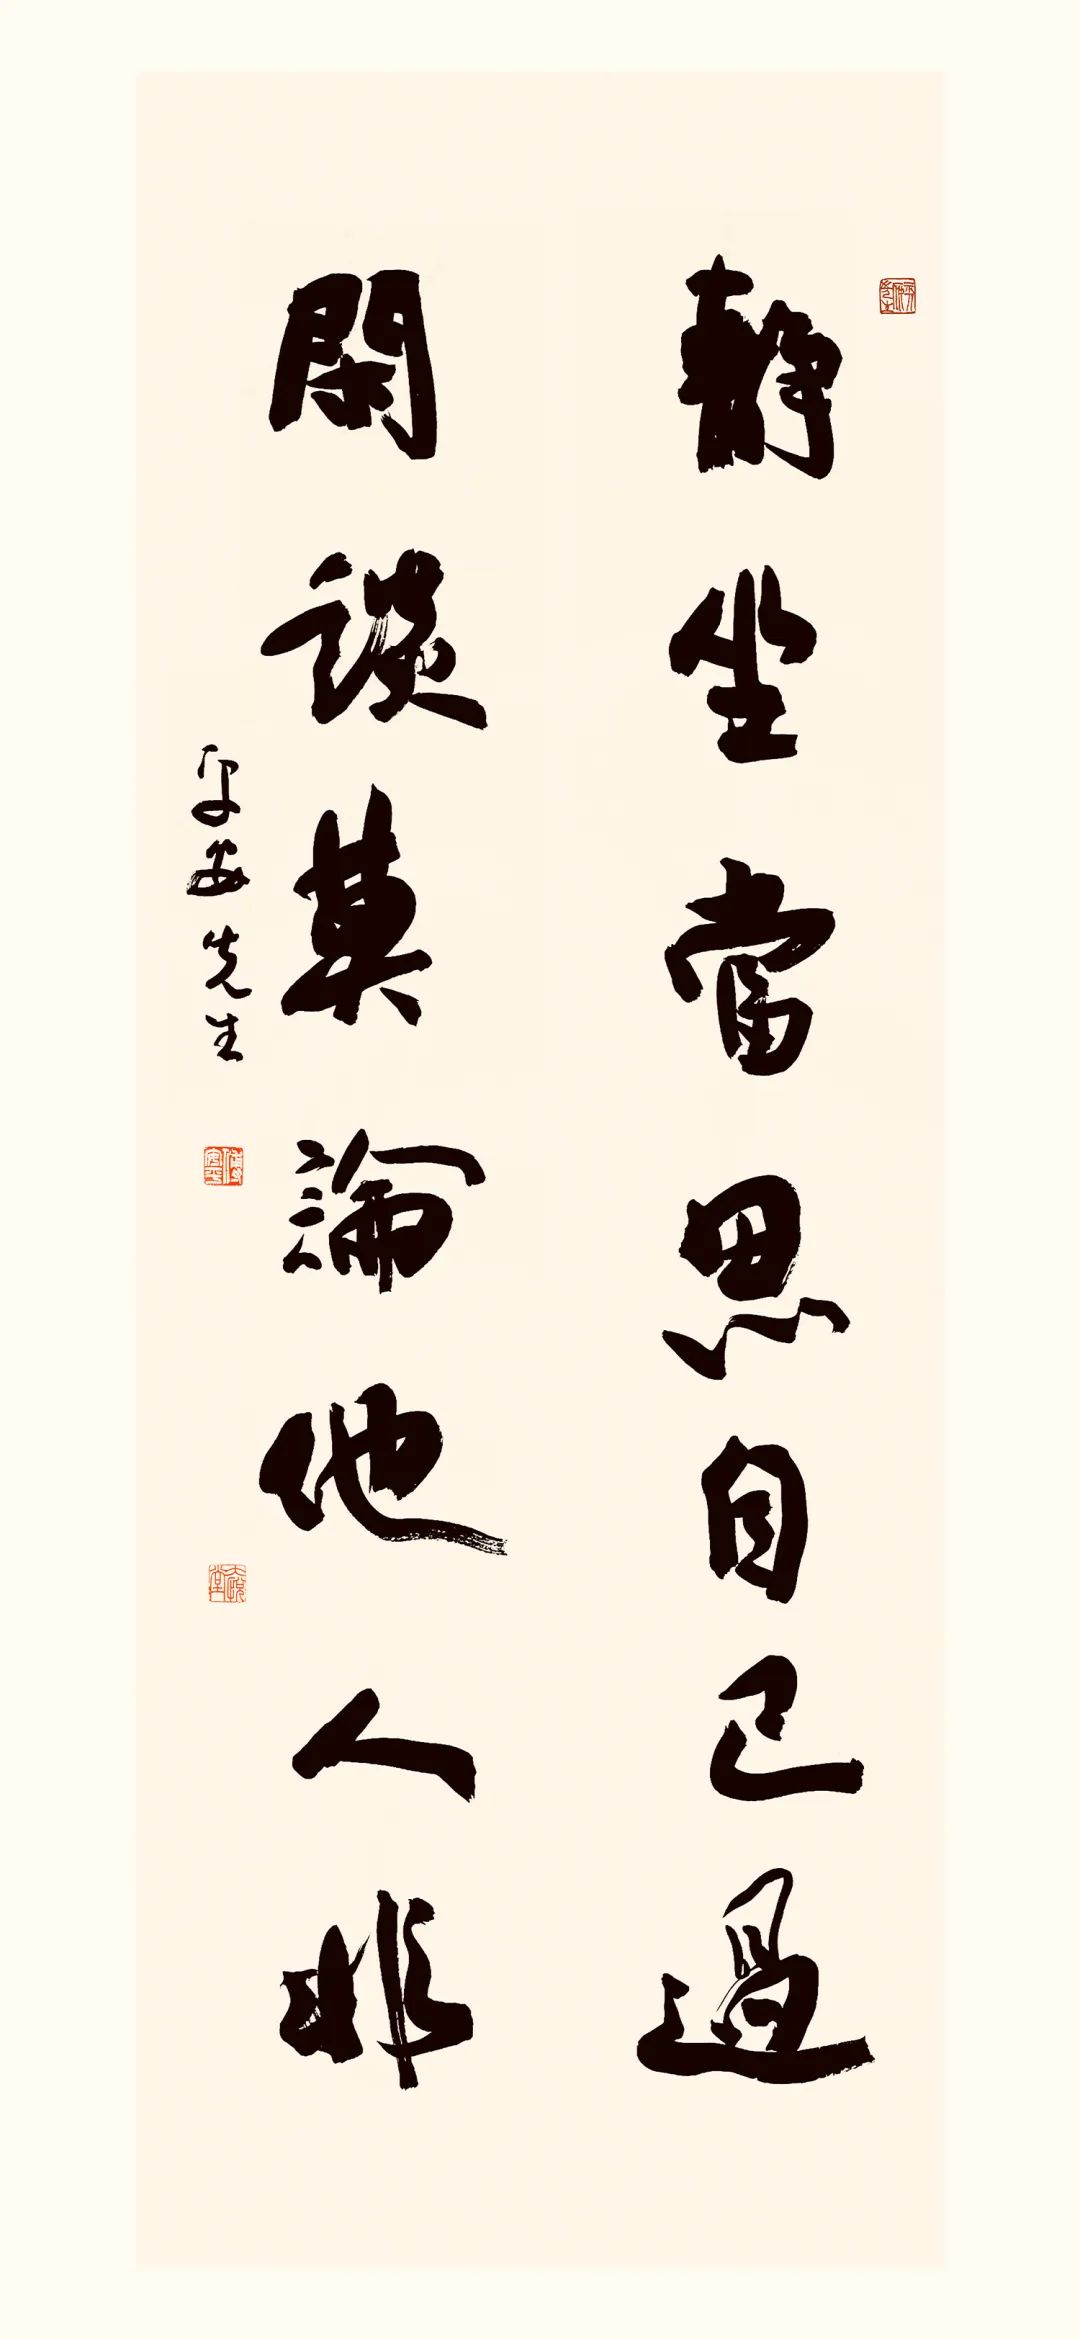 靜坐當思自己過
閑談莫論他人非
平安先生